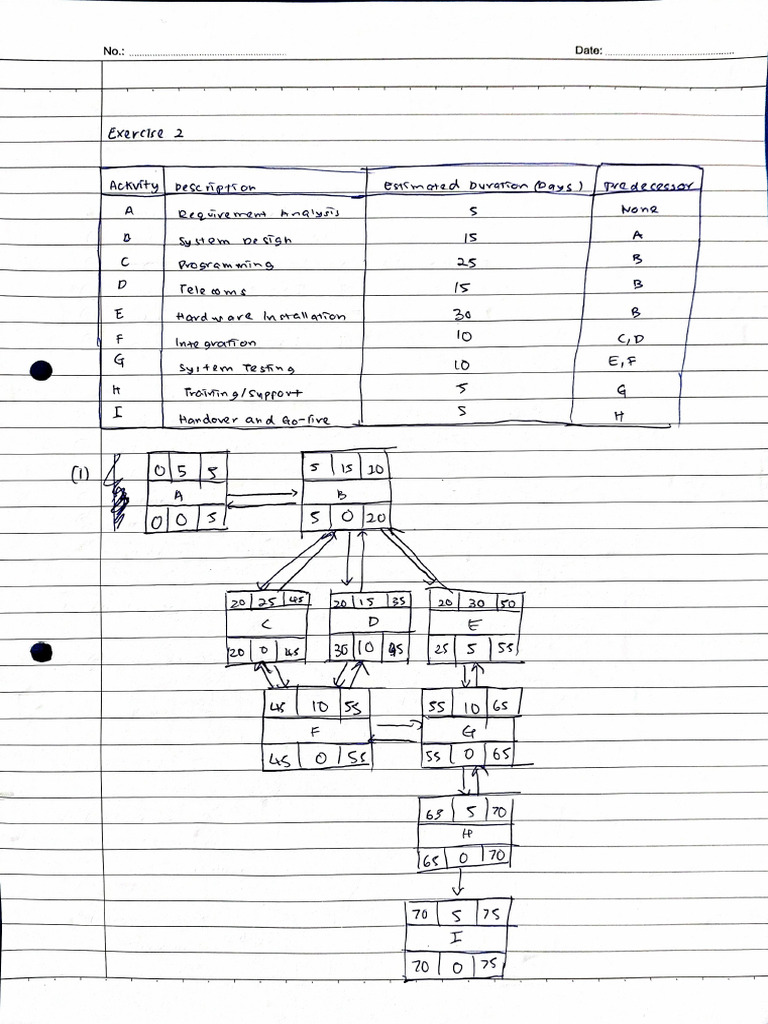 No.: Date:
Exercise 2
Activity Description Estimated Duration (Days) Predecessor
A Requirement Analysis 5 None
B System Design 15 A
C Programming 25 B
D Telecoms 15 B
E Hardware Installation 30 B
F Integration 10 C,D
G System Testing 10 E,F
H Training/Support 5 G
I Handover and Go-live 5 H
(1)
0 5 5 5 15 20
A B
0 0 5 5 0 20
20 25 45 20 15 35 20 30 50
C D E
20 0 45 30 10 45 25 5 55
45 10 55 55 10 65
F G
45 0 55 55 0 65
65 5 70
H
65 0 70
70 5 75
I
70 0 75